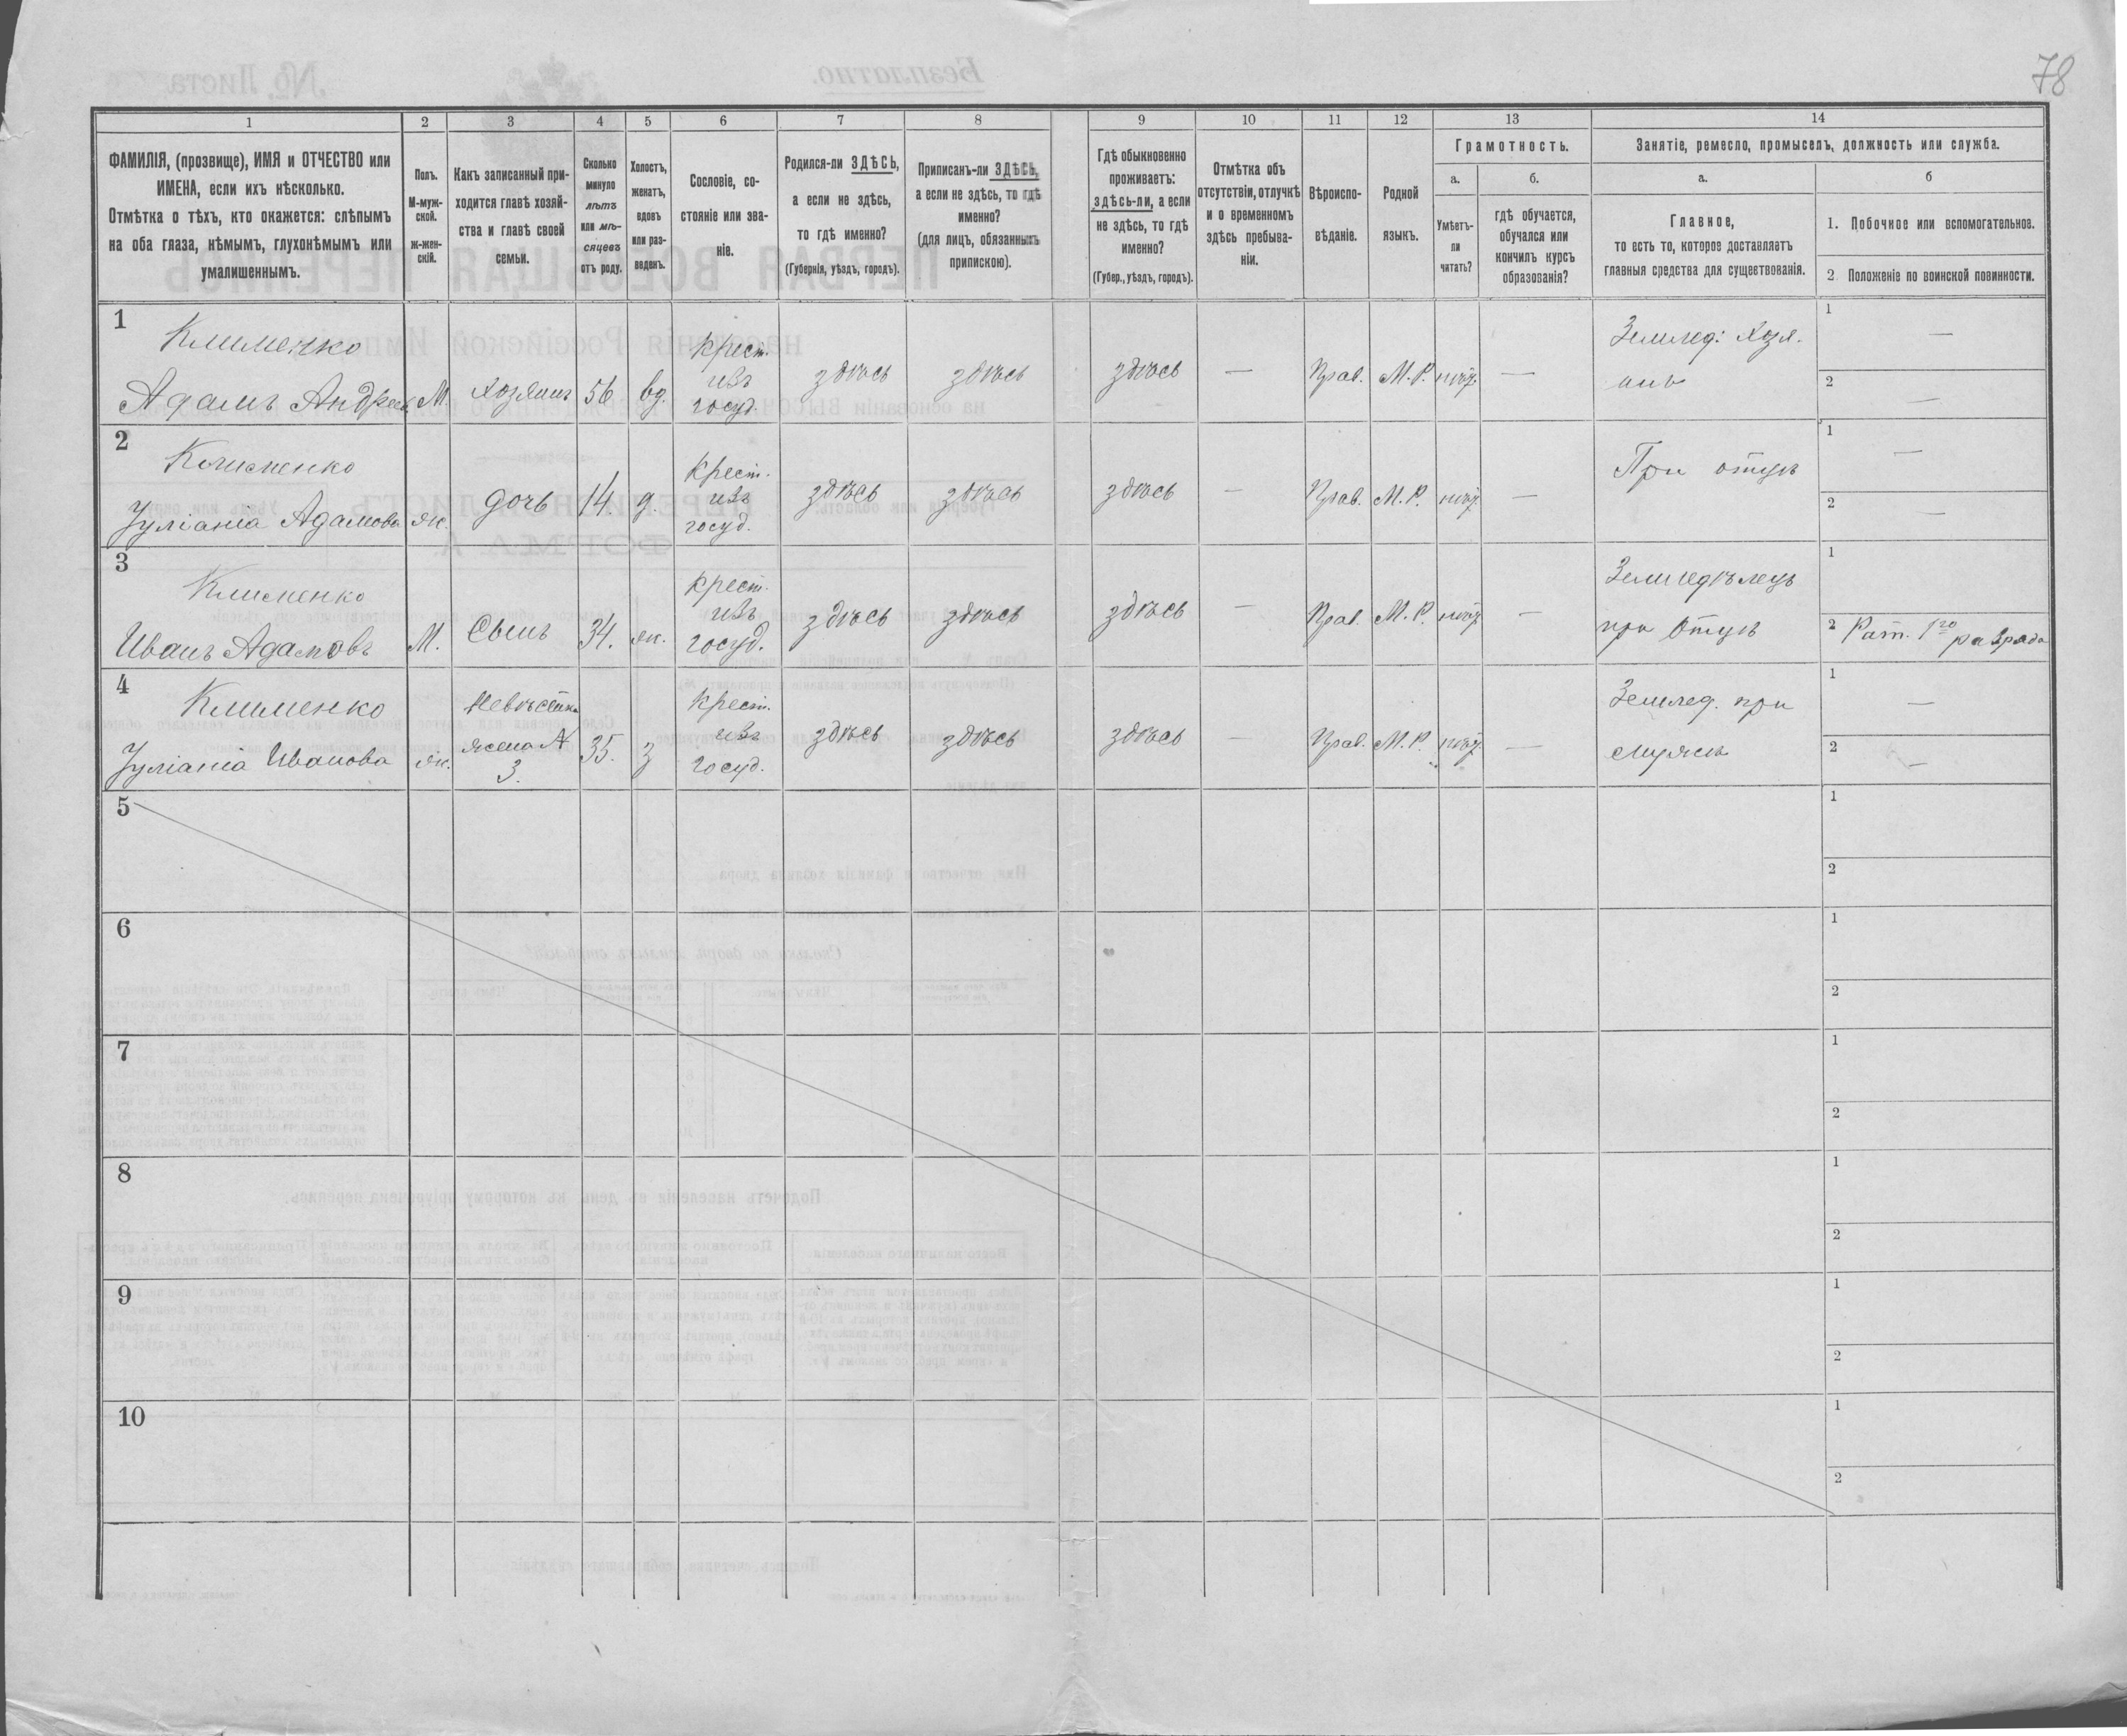 78
1 2 3 4 5 6 7 8 9 10 11 12 13 14
ФАМИЛІЯ, (прозвище), ИМЯ и ОТЧЕСТВО или
ИМЕНА, если ихъ нѣсколько.
Отмѣтка о тѣхъ, кто окажется: слѣпымъ
на оба глаза, нѣмымъ, глухонѣмымъ или
умалишеннымъ.
Полъ.
М-муж-
ской.
ж-жен-
скій.
Какъ записанный при-
ходится главѣ хозяй-
ства и главѣ своей
семьи.
Сколько
минуло
лѣтъ
или мѣ-
сяцевъ
отъ роду.
Холостъ,
женатъ,
вдовъ
или раз-
веденъ.
Сословіе, со-
стояніе или зва-
ніе.
Родился-ли ЗДѢСЬ,
а если не здѣсь,
то гдѣ именно?
(Губернія, уѣздъ, городъ).
Приписанъ-ли ЗДѢСЬ,
а если не здѣсь, то гдѣ
именно?
(для лицъ, обязанныхъ
припискою).
Гдѣ обыкновенно
проживаетъ:
здѣсь-ли, а если
не здѣсь, то гдѣ
именно?
(Губер., уѣздъ, городъ).
Отмѣтка объ
отсутствіи, отлучкѣ
и о временномъ
здѣсь пребыва-
ніи.
Вѣроиспо-
вѣданіе.
Родной
языкъ.
Грамотность.
а.
Умѣетъ-
ли
читать?
б.
гдѣ обучается,
обучался или
кончилъ курсъ
образованія?
Занятіе, ремесло, промыселъ, должность или служба.
а.
Главное,
то есть то, которое доставляетъ
главныя средства для существованія.
б
1. Побочное или вспомогательное.
2. Положеніе по воинской повинности.
1
Клименко
Адамъ Андреев.
М.
Хозяинъ
56
вд.
крест.
изъ
госуд.
здѣсь
здѣсь
здѣсь
—
Прав.
М.Р.
нѣт
—
Землед: Хозя.
инъ
1 —
2 —
2
Клименко
Іуліанія Адамова
ж.
дочь
14.
д.
крест.
изъ
госуд.
здѣсь
здѣсь
здѣсь
—
Прав.
М.Р.
нѣт
—
При отцѣ
1 —
2 —
3
Клименко
Иванъ Адамовъ
М.
Сынъ
34.
ж.
крест.
изъ
госуд.
здѣсь
здѣсь
здѣсь
—
Прав.
М.Р.
нѣт
—
Земледѣлецъ
при Отцѣ
1
2 Рат. 1го разряда
4
Клименко
Іуліанія Иванова
ж.
Невѣстка
жена №
3.
35.
з
крест.
изъ
госуд.
здѣсь
здѣсь
здѣсь
—
Прав.
М.Р.
нѣт
—
Землед. при
мужѣ
1 —
2 —
5
1
2
6
1
2
7
1
2
8
1
2
9
1
2
10
1
2